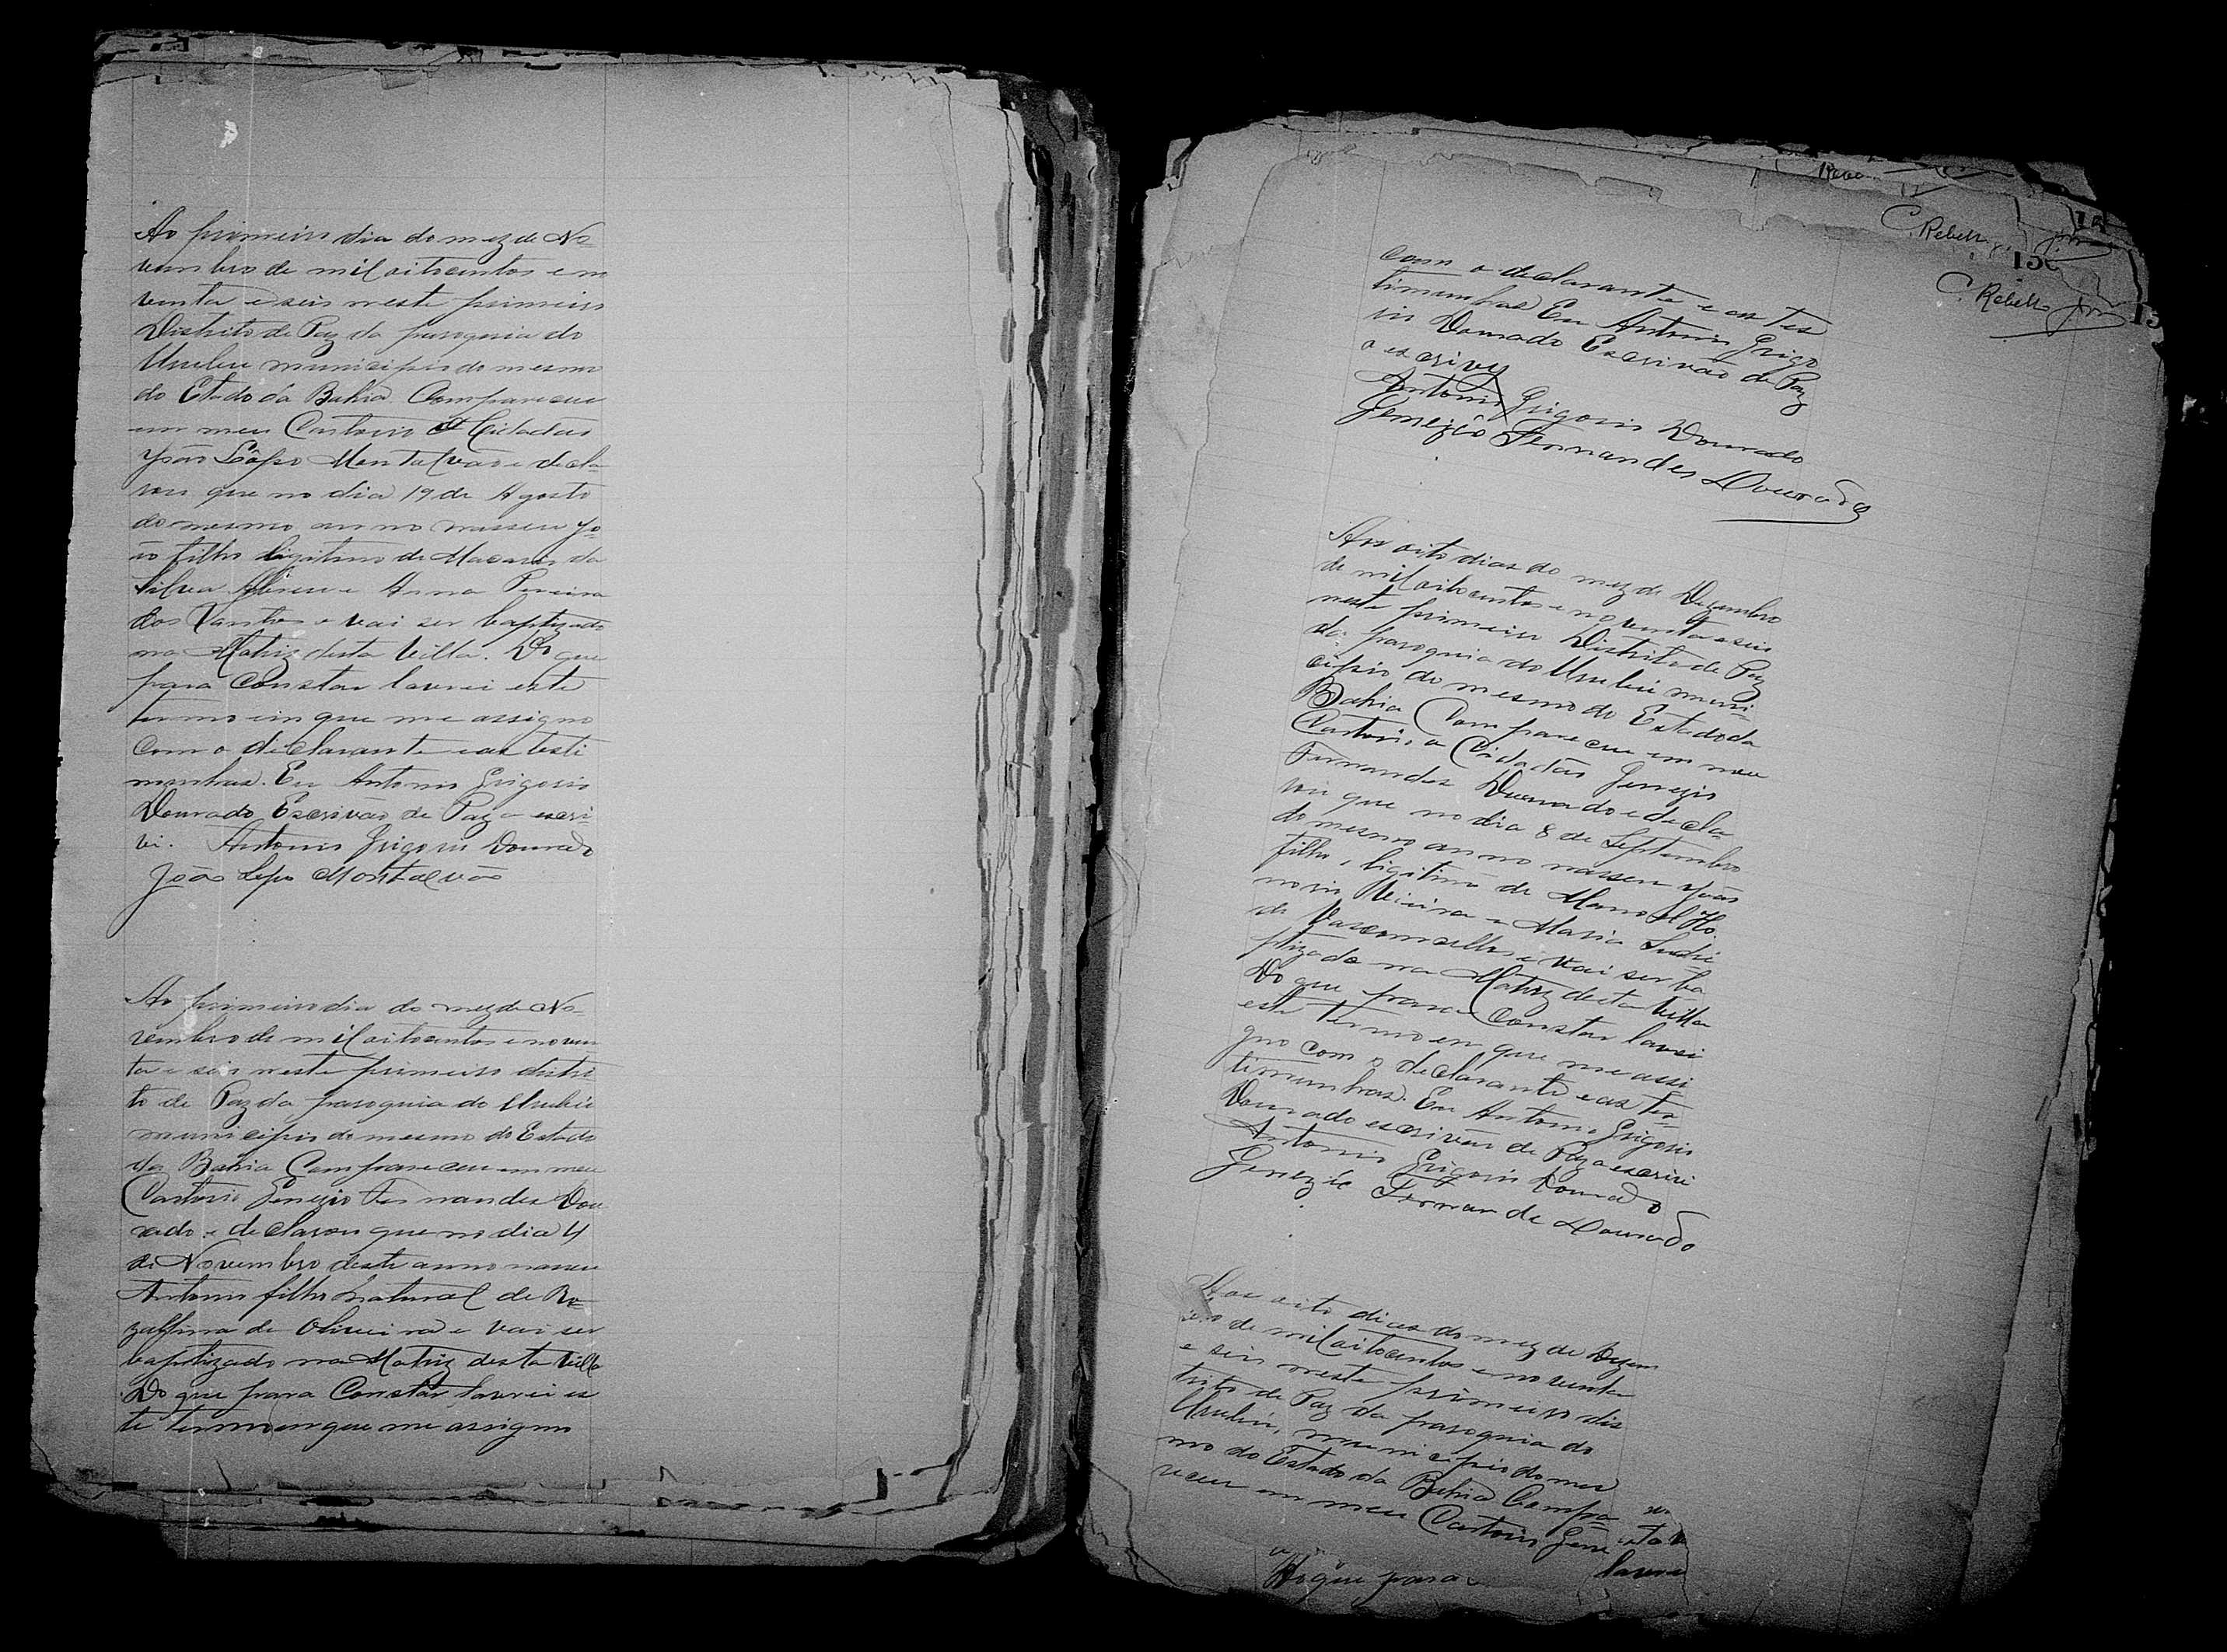 Ao primeiro dia do mez de No-
vembro de mil oitocentos e no
venta e seis neste primeiro
Distrito de Paz da paroquia do
Urubu municipio do mesmo
do Estado da Bahia Compareceu
em meu Cartorio o Cidadão
João Lôpo Montalvão e decla-
rou que no dia 19 de Agosto
do mesmo anno nasceu Jo-
ão filho ligitimo de Macario da
Silva Abreu e Anna Pereira
dos Santos e vai ser baptizado
na Matriz desta Villa. Do que
para Constar lavrei este
termo em que me assigno
com o declarante e as testi
munhas. Eu Antonio Grigorio
Dourado Escrivão de Paz o escri
vi. Antonio Grigorio Dourado
João Lopo Montalvão
Ao primeiro dia do mez de No-
vembro de mil oitocentos e noven
ta e seis neste primeiro distri-
to de Paz da paroquia do Urubú
municipio do mesmo do Estado
da Bahia Compareceu em meu
Cartorio Genezio Fernandes Dou
rado e declarou que no dia 4
de Novembro deste anno nasceu
Antonio filho natural de Ro-
zalina de Oliveira e vai ser
baptizado na Matriz desta Villa
Do que para Constar lavrei es
te termo em que me assigno
C. Rebello
150
C. Rebello
com o declarante e as tes
timunhas Eu Antonio Grigo
rio Dourado Escrivão de Paz
o escrivy
Antonio Grigorio Dourado
Genezio Fernandes Dourado
Aos oito dias do mez de Dezembro
de mil oitocentos e noventa e seis
neste primeiro Distrito de Paz
da paroquia do Urubú muni-
cipio do mesmo do Estado da
Bahia Compareceu em meu
Cartorio o Cidadão Genezio
Fernandes Dourado e decla-
rou que no dia 8 de Septembro
do mesmo anno nasceu João
filho ligitimo de Manoel Ho-
norio Vieira e Maria
de Vasconcellos e vai ser ba
ptizado na Matriz desta Villa
Do que para Constar lavrei
este termo em que me assi
gno com o declarante e as tes-
timunhas. Eu Antonio Grigorio
Dourado escrivão de Paz o escrivi
Antonio Grigorio Dourado
Genezio Fernande Dourado
Aos oito dias do mez de Dezem
bro de mil oitocentos e noventa
e seis neste primeiro dis
trito de Paz da paroquia do
Urubú, municipio do mes
mo do Estado da Bahia Compa-
receu em meu Cartorio Gene
Do que para lavrei